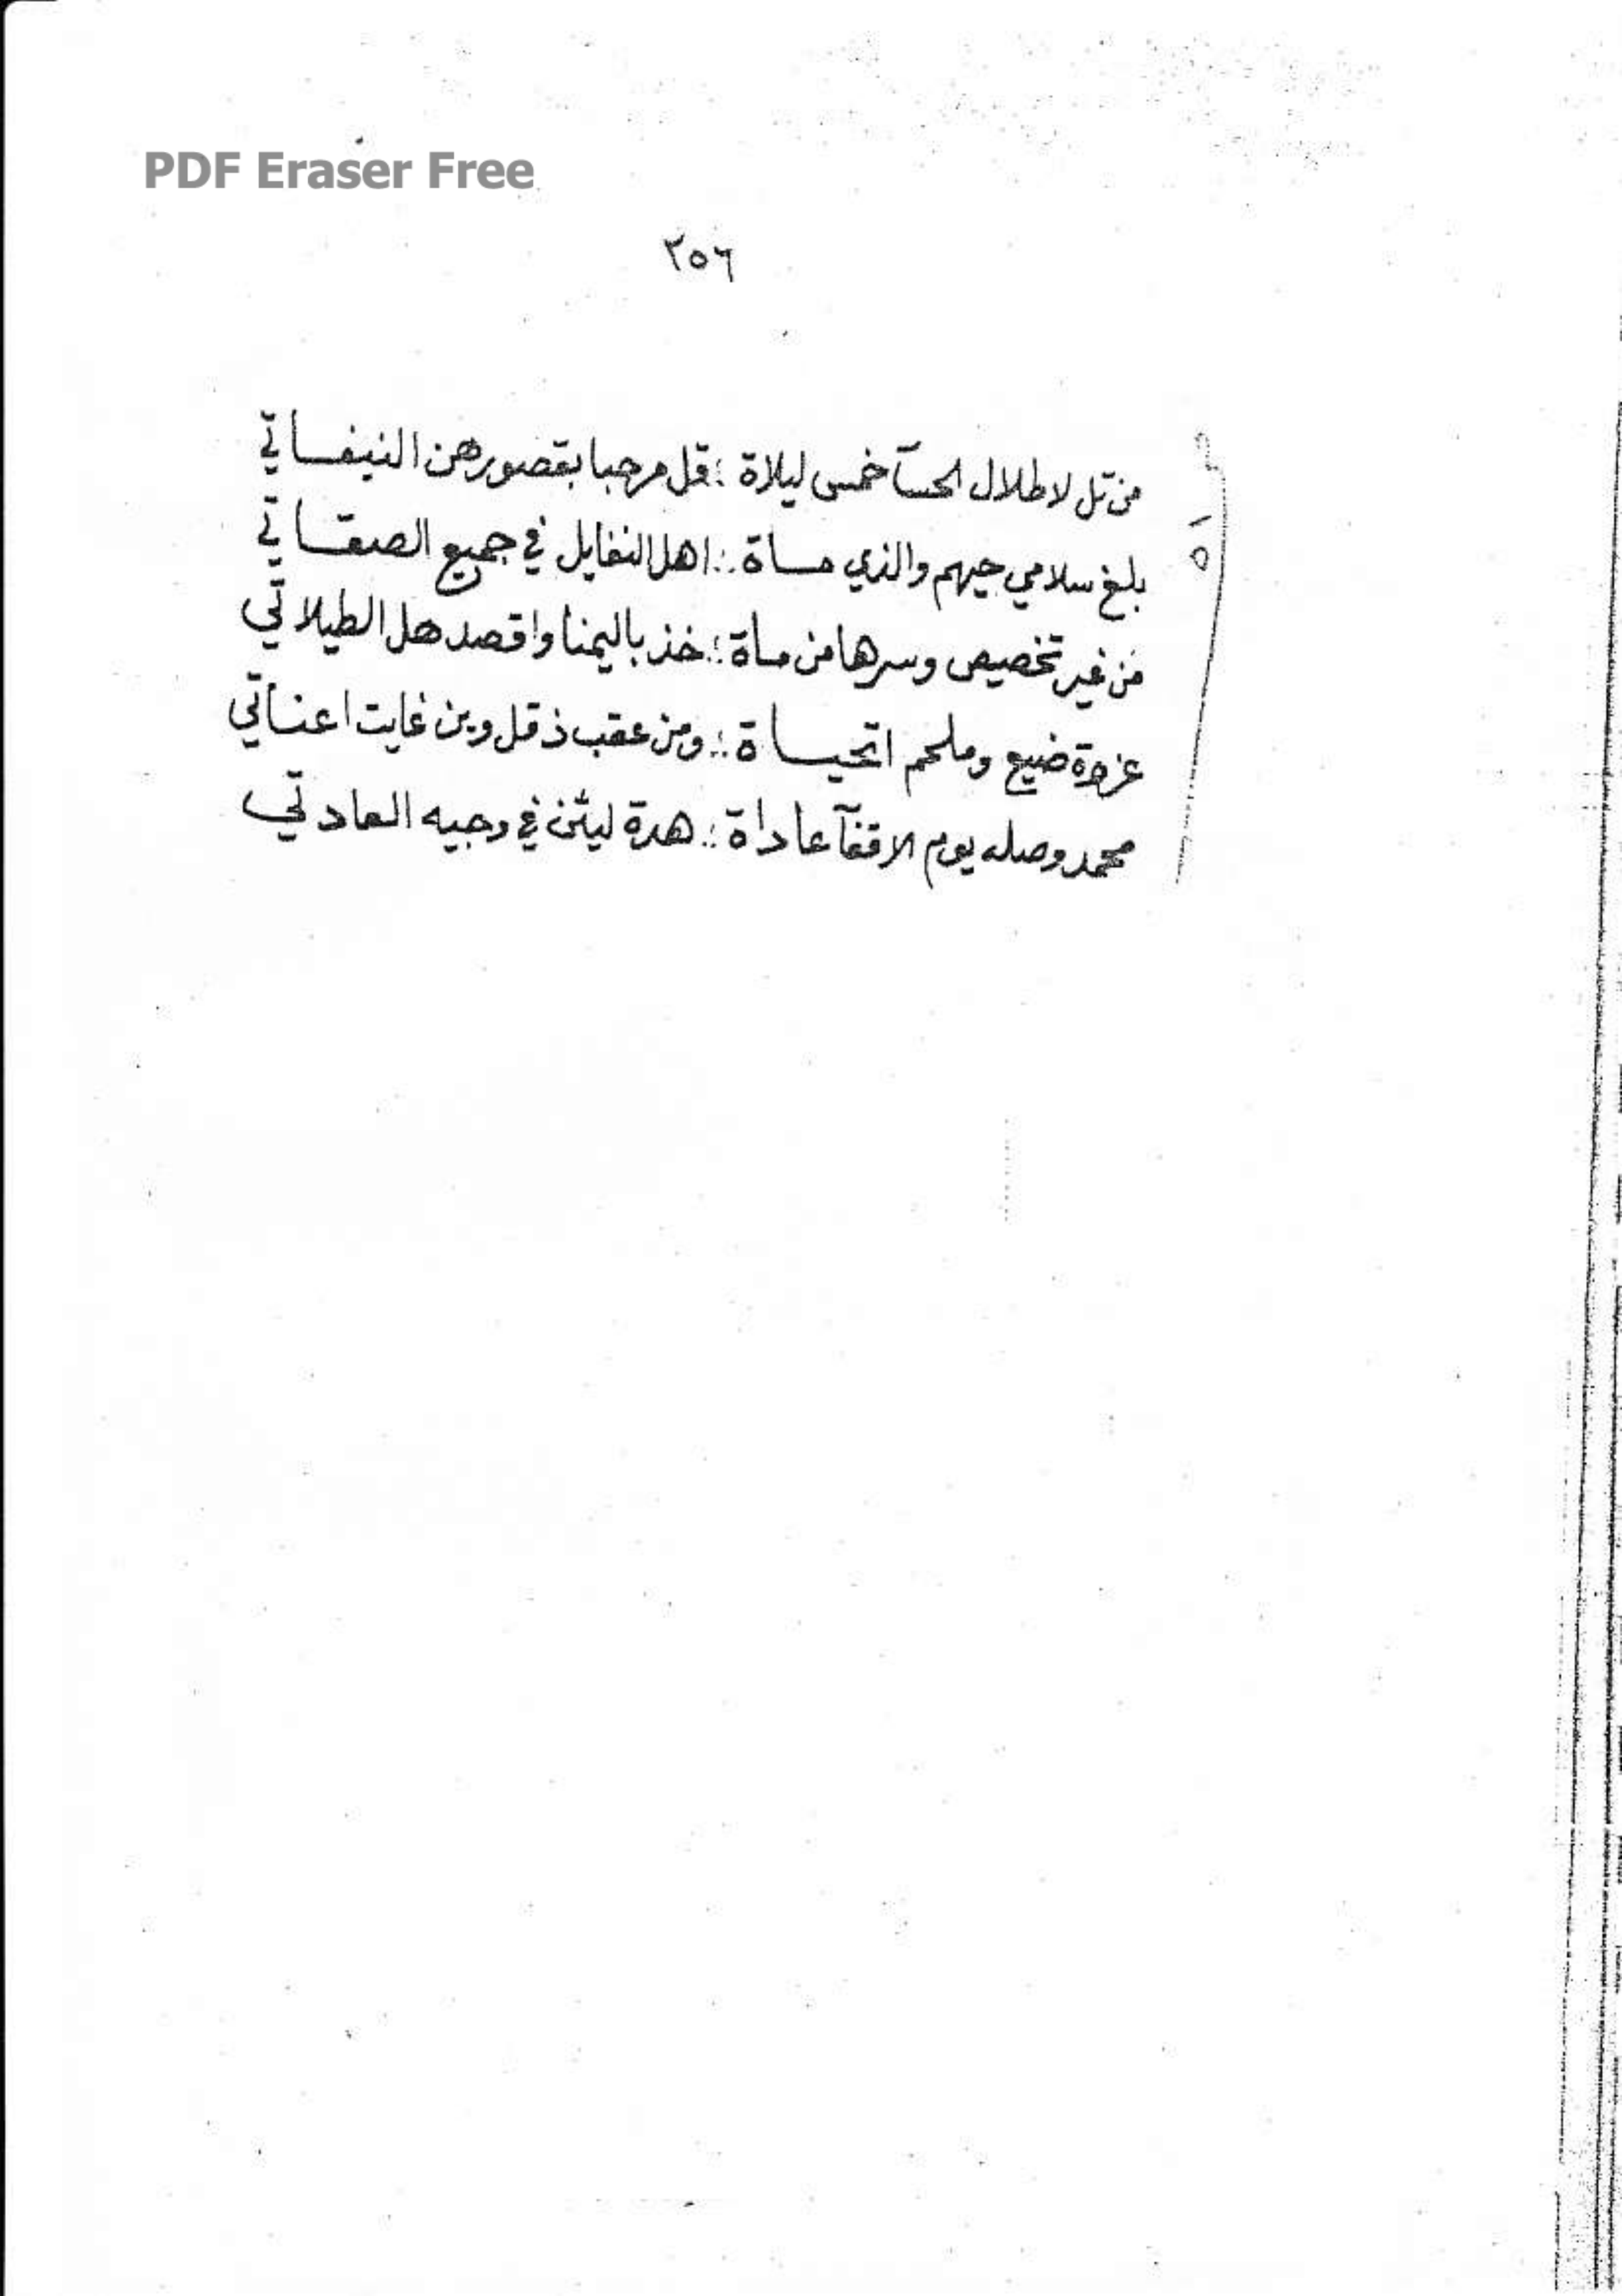 PDF Eraser Free
٢٥٦
من تل لاطلال الحسآ خمس ليلاة ؛ قل مرحبا بقصورهن النيفاتي
بلغ سلامي حيهم والذي مساة ؛ اهل النفايل في جميع الصفاتي
من غير تخصيص وسرها من مساة ؛ خذ باليمنا واقصد هل الطيلاتي
عزوة ضيع وملحم اتحيساة ؛ ومن عقب ذ قل وين غايت اعناتي
محمد وصله يوم الاقفآ عاداة ؛ هدة ليثن في وجيه العادتي